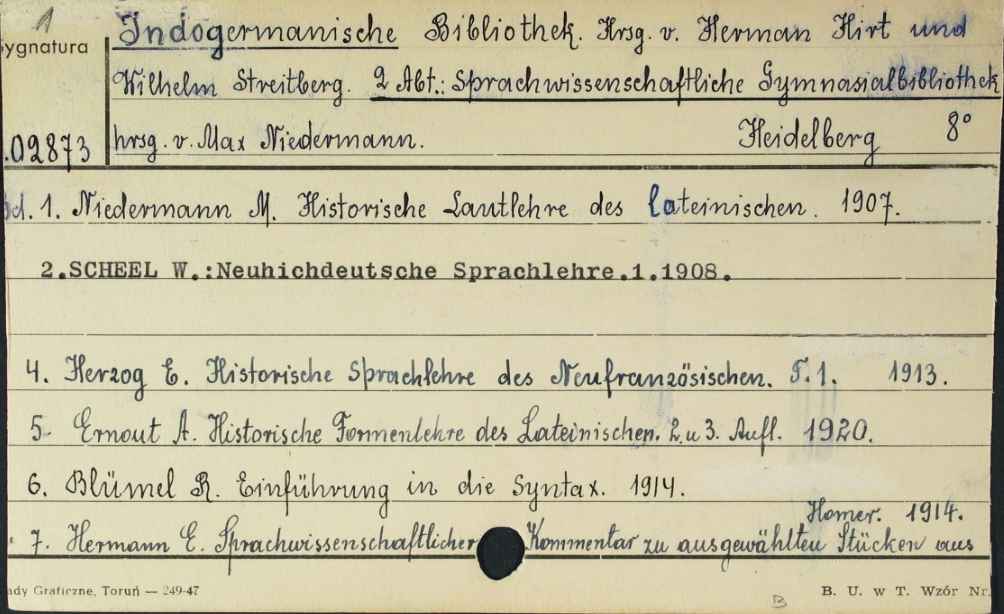 1
ygnatura
Indogermanische Bibliothek. Hrsg. v. Herman Hirt und
Wilhelm Streitberg. 2 Abt.: Sprachwissenschaftliche Gymnasialbibliothek
.02873 hrsg. v. Max Niedermann. Heidelberg 8°
Bd. 1. Niedermann M. Historische Lautlehre des lateinischen. 1907.
2.SCHEEL W.:Neuhichdeutsche Sprachlehre.1.1908.
4. Herzog E. Historische Sprachlehre des Neufranzösischen. T.1. 1913.
5. Ernout A. Historische Formenlehre des Lateinischen. 2. u 3. Aufl. 1920.
6. Blümel R. Einführung in die Syntax. 1914.
7. Hermann E. Sprachwissenschaftlicher Kommentar zu ausgewählten Stücken aus
Homer. 1914.
ady Graficzne, Toruń — 249-47
B. U. w T. Wzór Nr.
B